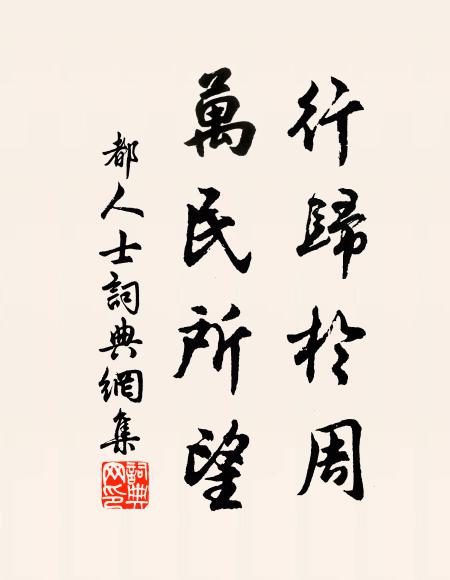 行歸於周
萬民所望
都人士詞典網集
詞典網印